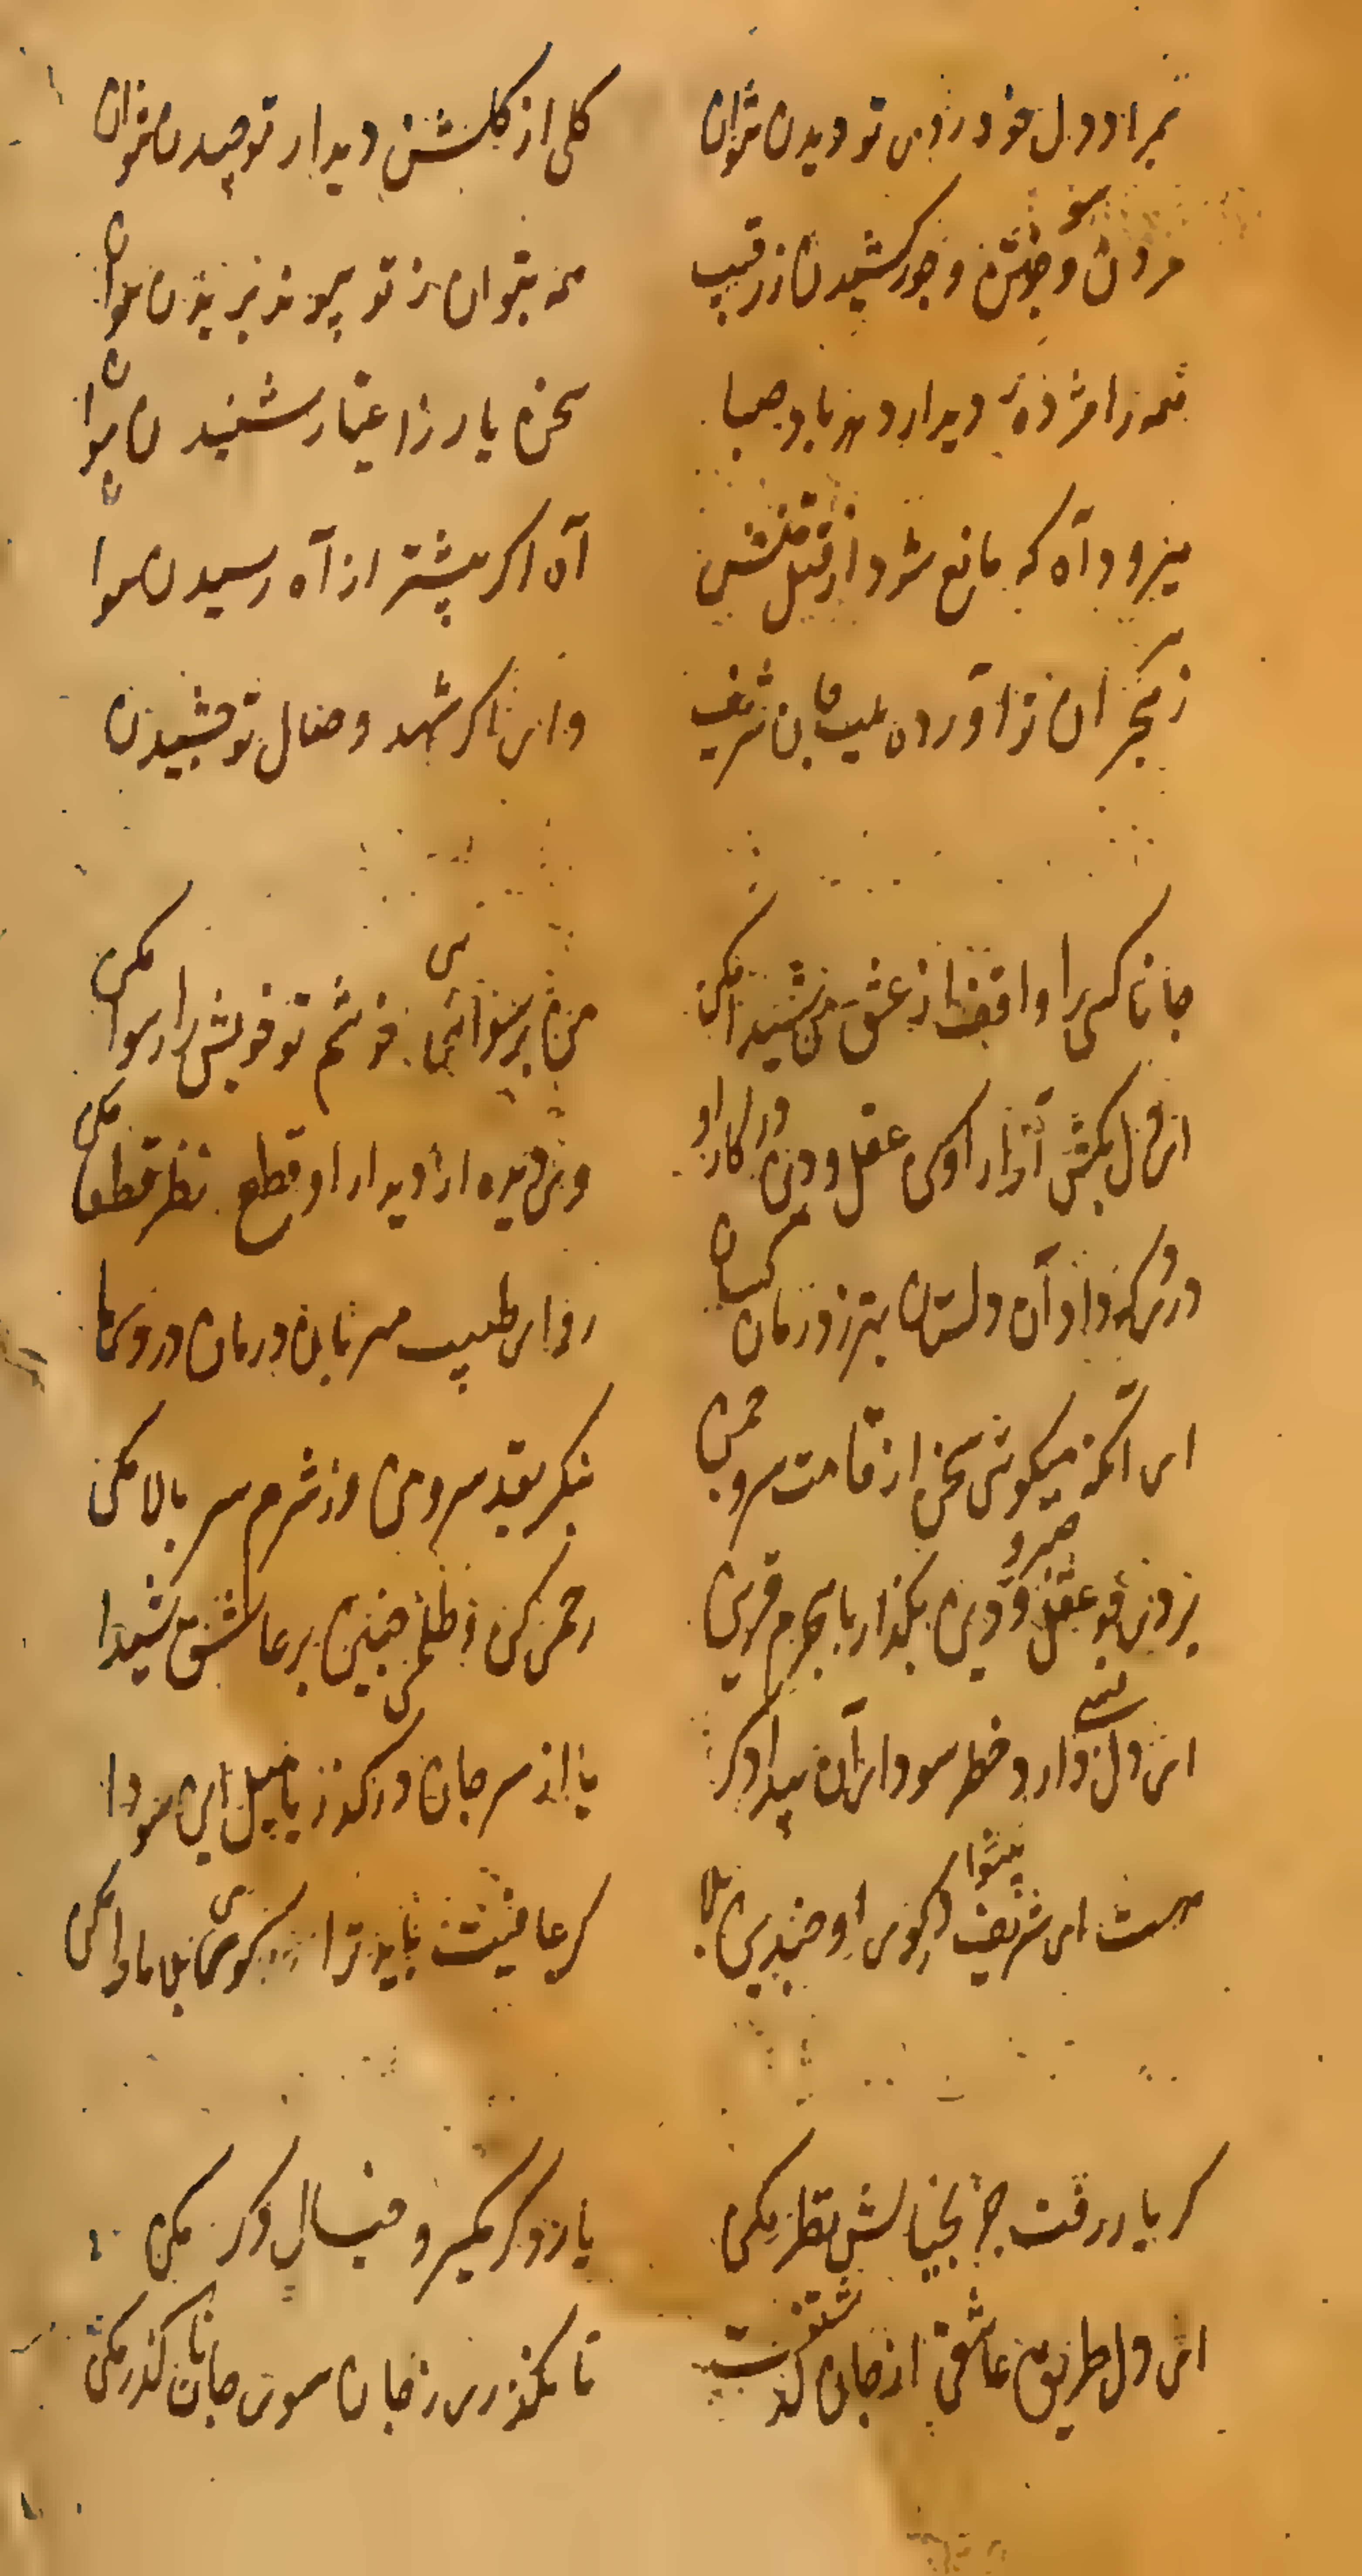 بمراد دل خود روی تو دیدن نتوان کلی از کلشن دیدار تو چیدن نتوان
مردن و جور کشیدن ز رقیب همه بتوان ز تو پیوند بریدن نتوان
همه را مژده دیدار دهد باد صبا سخن یار ز اغیار شنیدن نتوان
میرود آه که مانع شود از قتل منش آه اکر پیشتر از آه رسیدن نتوان
زهر هجران تو آورده بلب جان شریف وای اکر شهد وصال تو چشیدن
جانا کسی را واقف از عشق من شیدا مکن من برسوائی خوشم تو خویش را رسوا مکن
ای دل بکش آزار او کن عقل و دین در کار او وی دیده از دیدار او قطع نظر قطعا مکن
دردی که داد آن دلستان بهتر ز درمان کسان رو ای طبیب مهربان درمان درد ما
ای آنکه میکوئی سخن از قامت سرو چمن بنکر بقد سرو من وز شرم سر بالا مکن
عقل و دین بکذار با هجرم قرین رحمی کن و ظلم چنین بر عاشق شیدا
ای دل دارد خطر سودای آن بیدادکر یا از سر جان درکذر یا میل این سودا
هست ای شریف در کوی او چندین بلا کر عافیت باید ترا در کوی بلا ماوا مکن
کر یار رفت جز بخیالش نظر مکن یار دکر مکیر و خیال دکر مکن
ای دل طریق عاشقی از جان کذشتنست تا نکذری ز جان سوی جانان کذر مکن